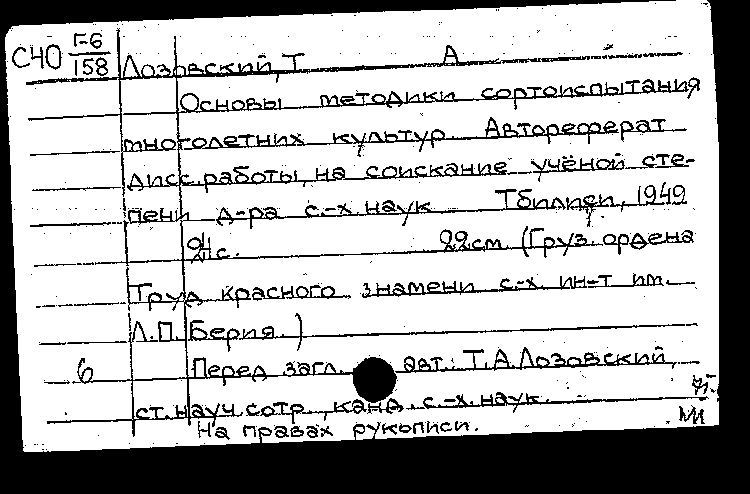 С40 Г-6
158 Лозовский, Т А
Основы методики сортоиспытания
многолетних культур. Автореферат
дисс.работы, на соискание учёной сте-
пени д-ра с.-х. наук Тбилиси, 1949
21 с. 22 см. (Груз. ордена
Труд. красного знамени с-х. ин-т им.
Л.П. Берия.)
6 Перед загл. авт.: Т.А.Лозовский,
ст. науч. сотр., канд. с.-х. наук.
На правах рукописи.